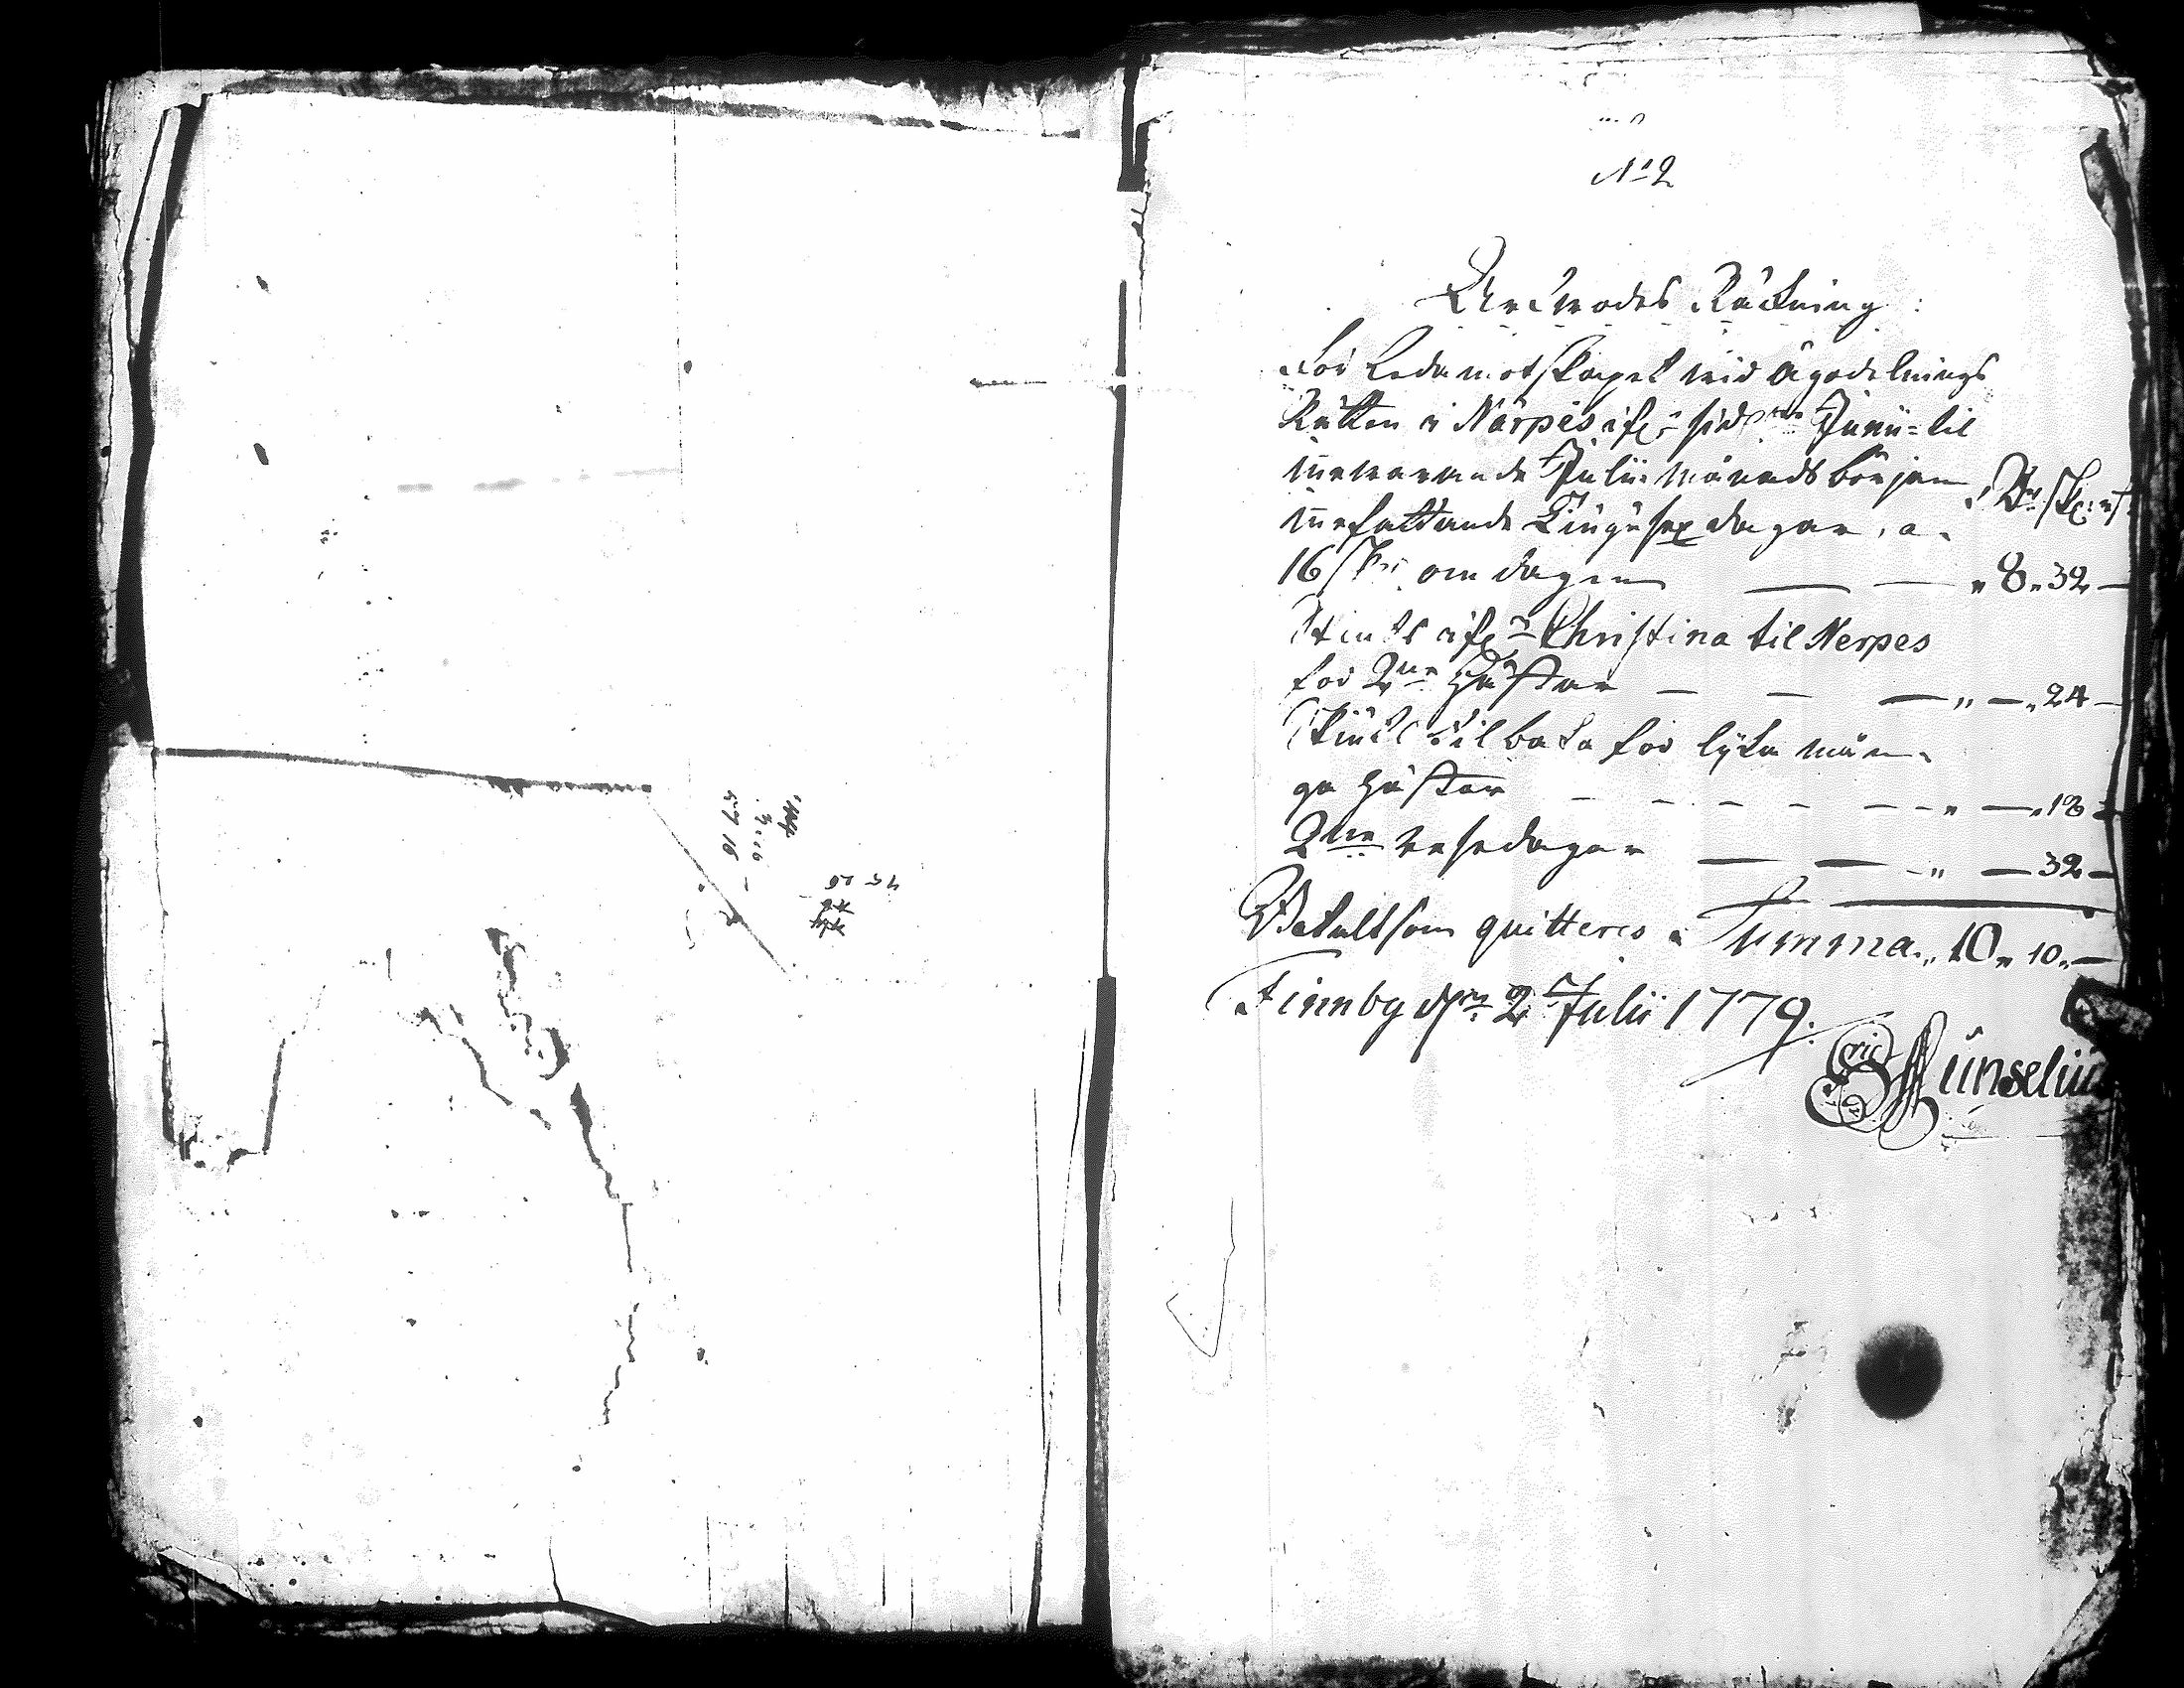 No 2
Arfwodes Räckning:
För Ledamotskapet wid Ägodelnings
Rätten i Närpes ifrån sidsta Junii til
inewarande Julii månads början
Dr. sk. rst.
inefattande Tiugusex dagar, a
16 sk. om dagen — — " 8 " 32 —
Skiuts ifrån Christina til Nerpes
för 2ne Hästar — — — " — " 24 —
Skiuts Tilbaka för lyka mån-
ga Hästar — — — — — — " — " 18
2ne resedagar — — " — 32 —
Betalt som quitteres Summa " 10 " 10 " —
Finnby den 2 Julii 1779.
Eric Munselius